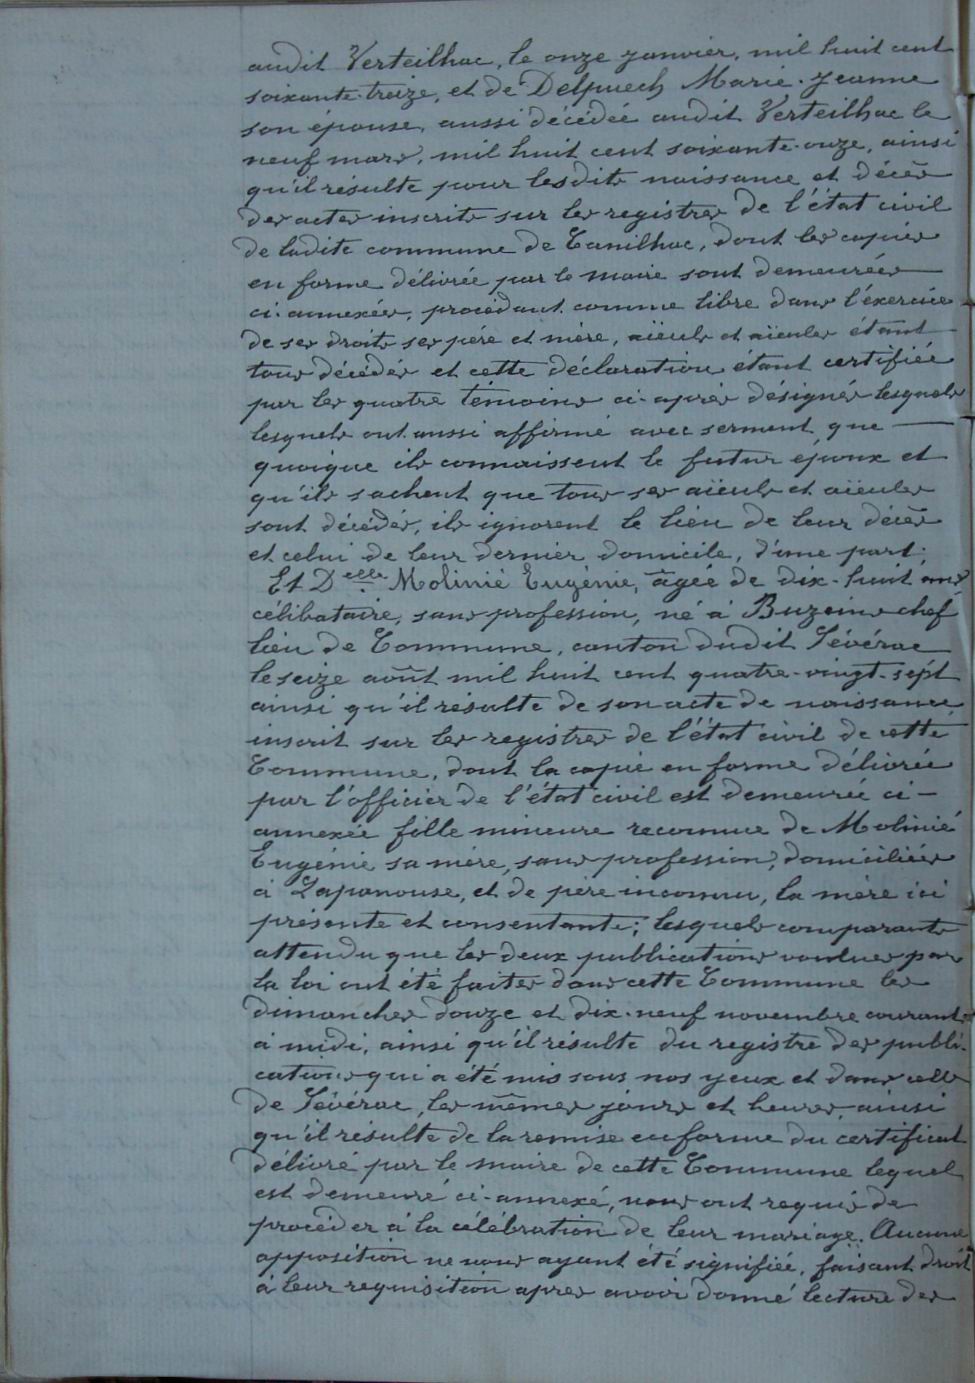 audit Verteilhac, le onze janvier, mil huit cent
soixante-treize, et de Delpuech Marie-Jeanne
son épouse, aussi décédée audit Verteilhac le
neuf mars, mil huit cent soixante-onze, ainsi
qu'il résulte pour lesdits naissance et décès
des actes inscrits sur les registres de l'état civil
de ladite commune de Tanilhac, dont les copies
en forme délivrée par le maire sont demeurées
ci-annexées, procédant comme libre dans l'éxercice
de ses droits ses père et mère, aïeuls et aïeules étant
tous décédés et cette déclaration étant certifiée
par les quatre témoins ci-après désignés lesquels
lesquels ont aussi affirmé avec serment que
quoique ils connaissent le futur époux et
qu'ils sachent que tous ses aïeuls et aïeules
sont décédés, ils ignorent le lieu de leur décès
et celui de leur dernier domicile, d'une part;
Et Delle Molinié Eugénie, âgée de dix-huit ans,
célibataire, sans profession, né à Buzeins chef
lieu de Commune, canton dudit Sévérac
le seize août mil huit cent quatre-vingt-sept
ainsi qu'il résulte de son acte de naissance
inscrit sur les registres de l'état civil de cette
Commune, dont la copie en forme délivrée
par l'officier de l'état civil est demeurée ci-
annexée fille mineure reconnue de Molinié
Eugénie sa mère, sans profession, domiciliée
à Lapanouse, et de père inconnu, la mère ici
présente et consentante; lesquels comparants
attendu que les deux publications voulues par
la loi ont été faites dans cette Commune les
dimanches douze et dix-neuf novembre courant
à midi, ainsi qu'il résulte du registre des publi-
cations qui a été mis sous nos yeux et dans celle
de Sévérac, les mêmes jours et heures, ainsi
qu'il résulte de la remise en forme du certificat
délivré par le maire de cette Commune lequel
est demeuré ci-annexé, nous ont requis de
procéder à la célébration de leur mariage. Aucune
opposition ne nous ayant été signifiée, faisant droit
à leur requisition après avoir donné lecture des